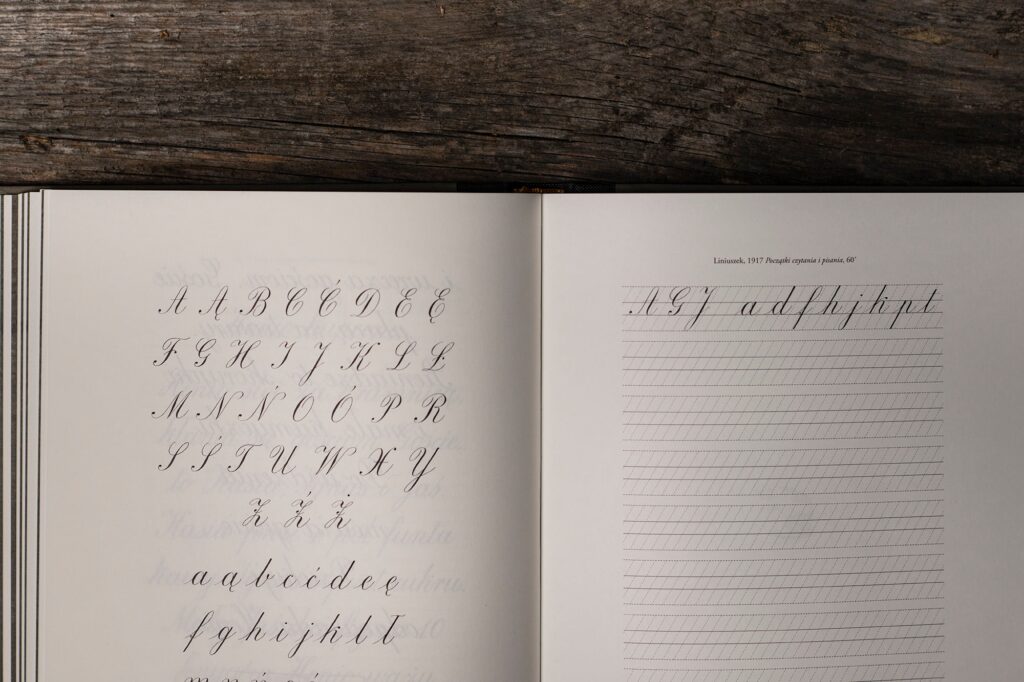 A Ą B C Ć D E Ę
F G H I J K L Ł
M N Ń O Ó P R
S Ś T U W X Y
Z Ź Ż
a ą b c ć d e ę
f g h i j k l ł
m n ń o ó
Liniuszek, 1917 Początki czytania i pisania, 60°
A G J a d f h j k p t